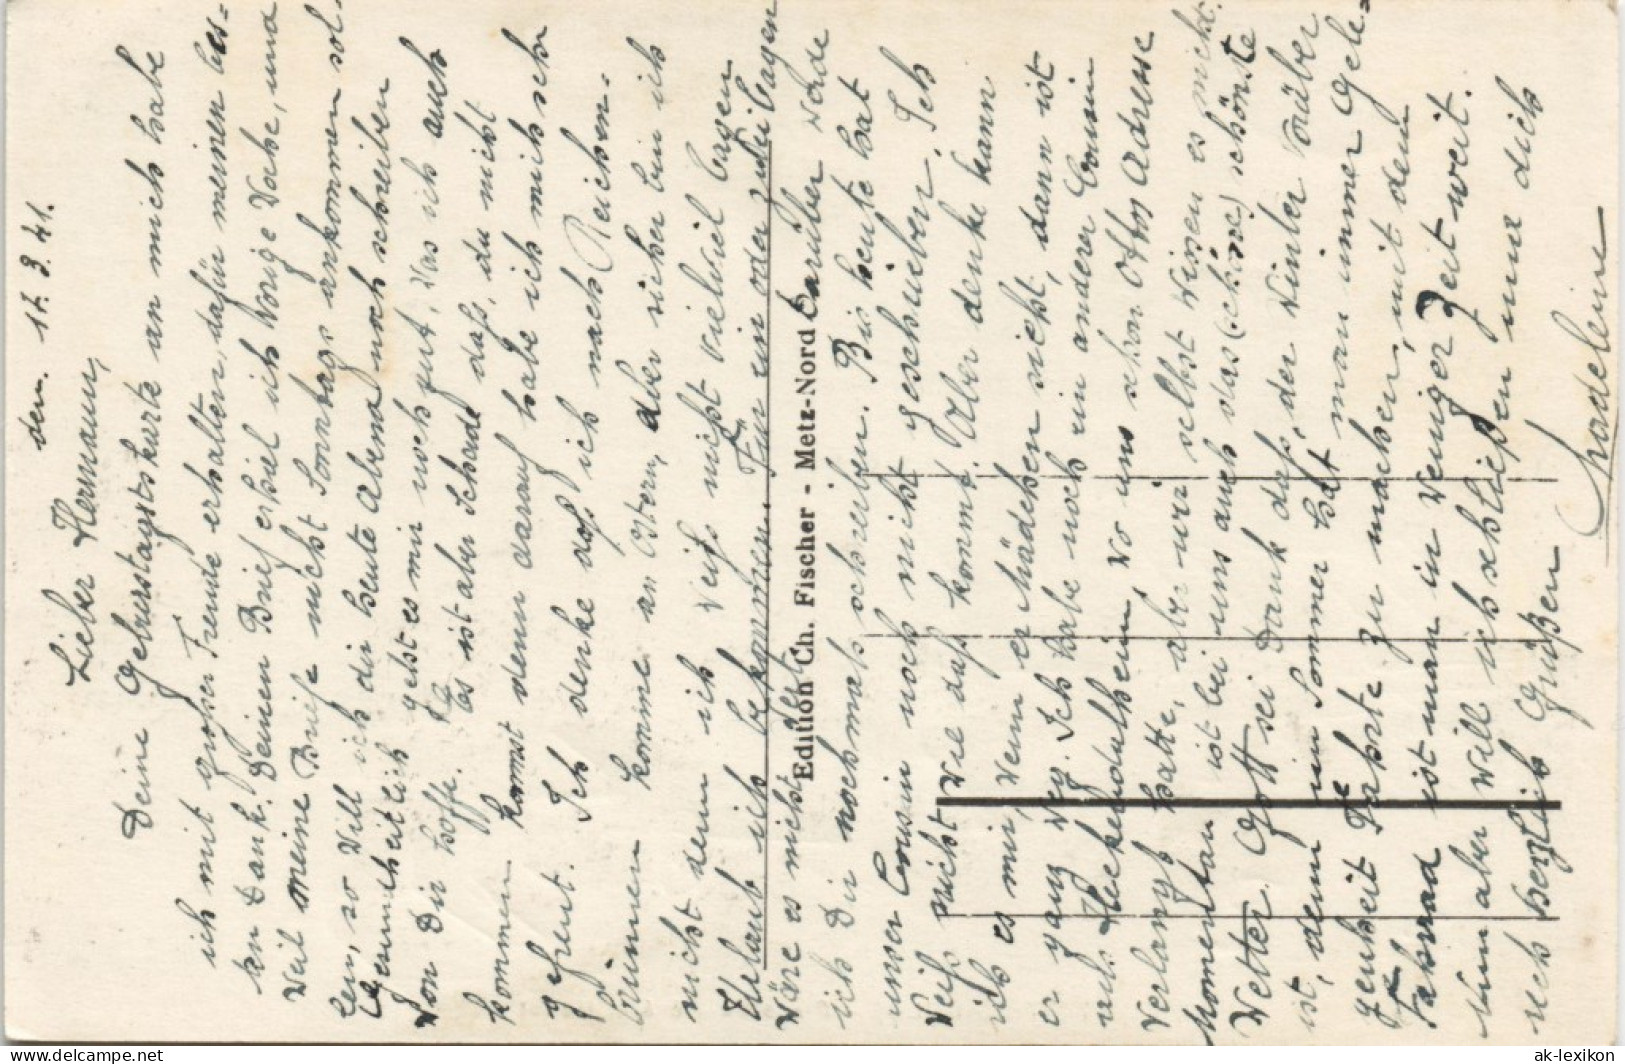 den. 17. 3. 41.
Lieber Hermann,
Deine Geburstagtskarte an mich habe
ich mit großer Freude erhalten, dafür meinen bes=
ten Dank. Deinen Brief erhiel ich Vorige Woche, und
Weil meine Briefe nicht Sonntags ankommen sol-
len, so Will ich dir heute Abend noch schreiben
Gesundheitlich geht es mir noch gut, Was ich auch
Von Dir hoffe. Es ist aber Schade daß, du nicht
kommen konnst denn darauf habe ich mich sehr
gefreut. Ich denke daß ich nach Reichen-
komme an Ostern, aber sicher bin ich
nicht denn ich Weiß nicht Vieviel Tagen
Urlaub ich bekommen. Für ein oder zwei Tagen
Wäre es nicht Darüber Werde
ich Dir nochmals schreiben. Bis heute hat
unser Cousin noch nicht geschrieben. Ich
Weiß nicht Wie daß kommt. Aber denke kann
ich es mir, Wenn er Mädchen sieht, dann ist
er ganz Weg. Ich habe noch ein anderer Cousin
aus, Wo uns schon Otto Adresse
Verlangt hatte, aber wir selbst Wissen es nicht.
Momentan ist bei uns auch das (schöne) schönste
Wetter. Gott sei Dank daß, der Winter Vorüber
ist, denn im Sommer hat man immer Gele=
genheit Fahrte zu machen, mit dem
Fahrrad ist man in Weniger Zeit weit.
Nun aber Will ich schließen und dich
recht herzlich Grüßen
Madeleine
Edition Ch. Fischer - Metz-Nord
delcampe.net
ak-lexikon